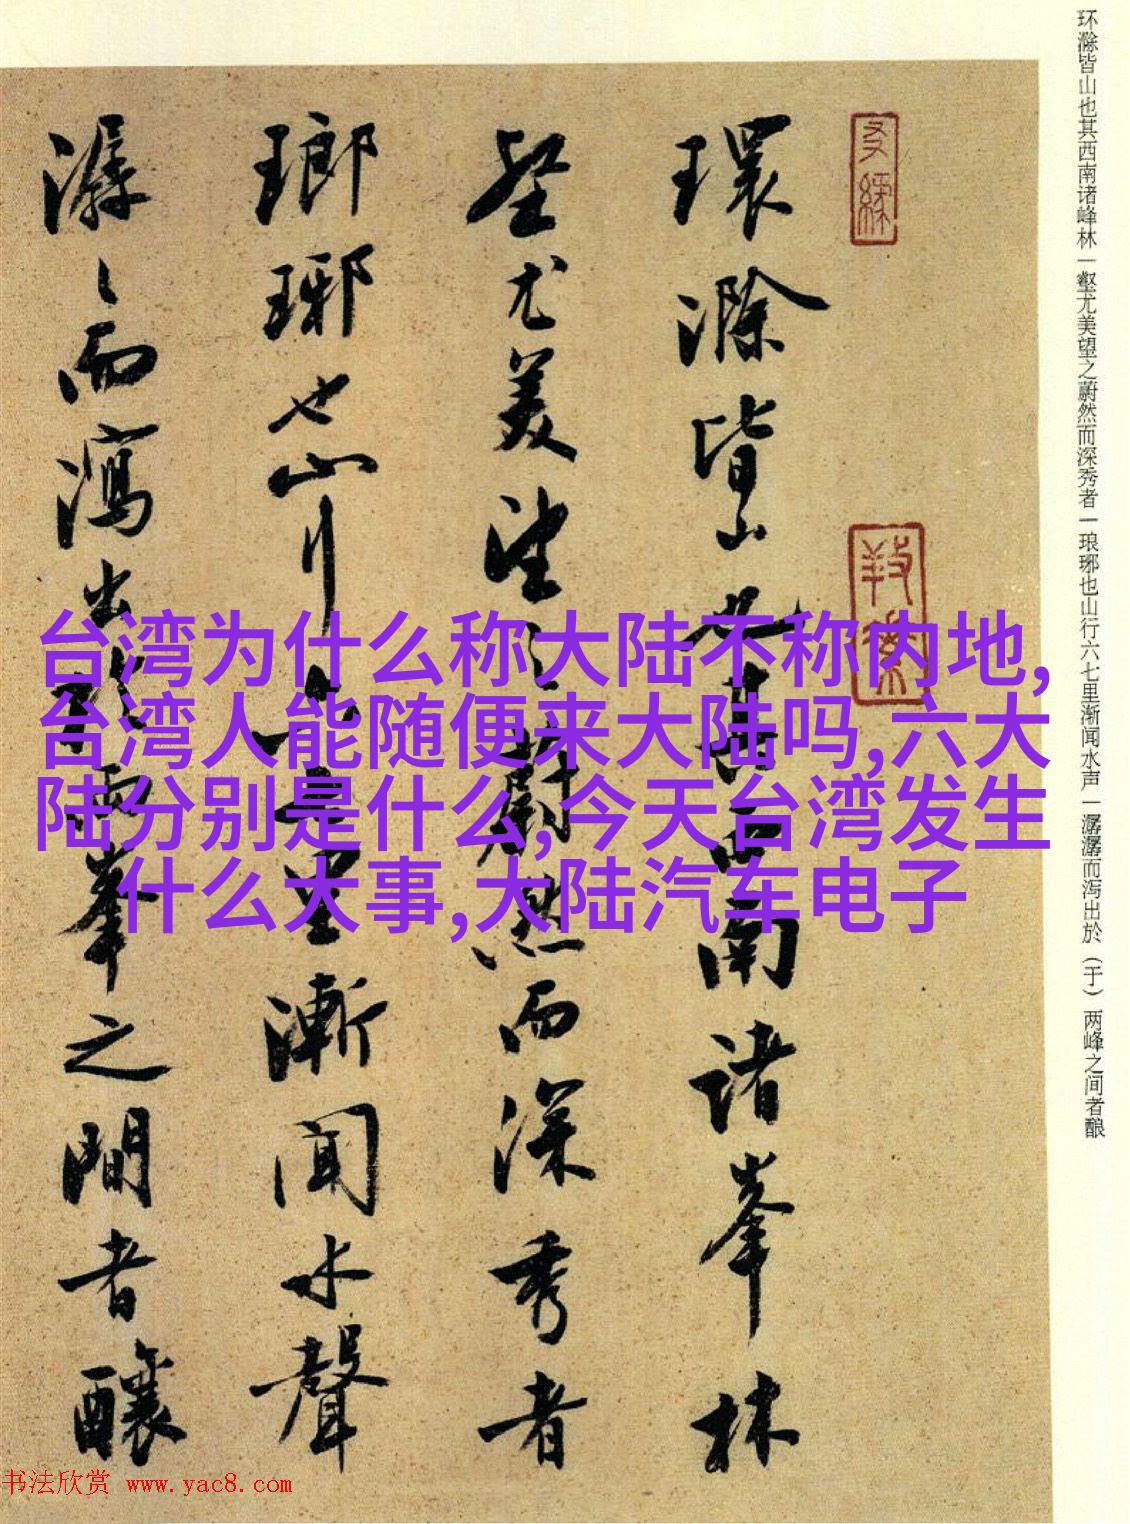 环滁皆山也其西南诸峰林一壑尤美望之蔚然而深秀者一琅琊也山行六七里渐闻水声一潺潺而泻出於（于）两峰之间者酿
環滁皆山也其西南諸峯林
壑尤美望之蔚然而深秀者
瑯琊也山行六七里漸聞水聲
潺〻而瀉出於兩峯之間者釀
台湾为什么称大陆不称内地,
台湾人能随便来大陆吗,六大
陆分别是什么,今天台湾发生
什么大事,大陆汽车电子
书法欣赏 www.yac8.com